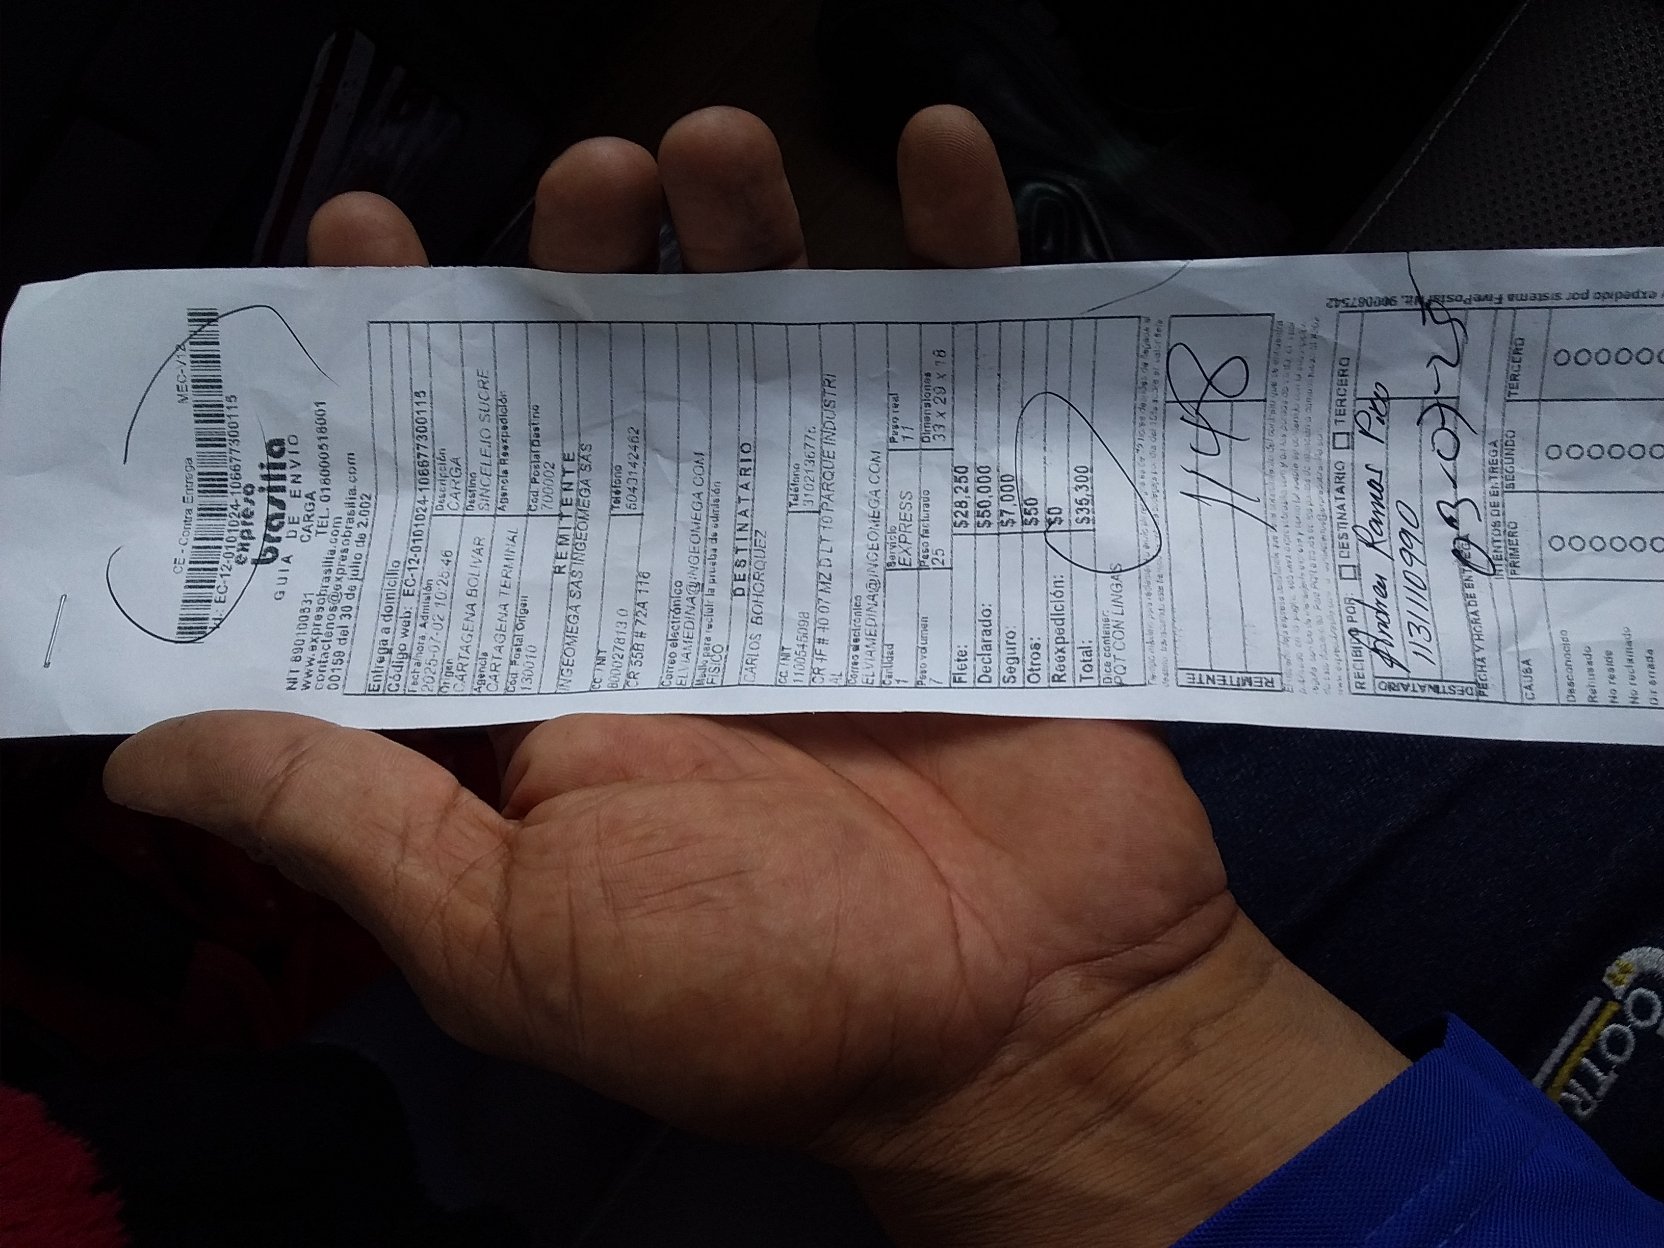 CE - Contra Entrega MEC-V12
Id.: EC-12-0101024-1066677300115
expreso
brasilia
GUIA DE ENVIO
CARGA
NIT 890100531 TEL. 018000518001
www.expresobrasilia.com
contactenos@expresobrasilia.com
00159 del 30 de julio de 2.002
Entrega a domicilio
Código web: EC-12-0101024-1066677300115
Fecha/hora Admisión Descripción
2025-07-02 10:26:46 CARGA
Origen Destino
CARTAGENA BOLIVAR SINCELEJO SUCRE
Agencia Agencia Reexpedición
CARTAGENA TERMINAL
Cód. Postal Origen Cód. Postal Destino
130010 700002
REMITENTE
INGEOMEGA SAS INGEOMEGA SAS
CC/NIT Teléfono
8000278130 6043142462
CR 55B # 72A 116
Correo electrónico
ELVIAMEDINA@INGEOMEGA.COM
Medio para recibir la prueba de admisión
FISICO
DESTINATARIO
CARLOS BOHORQUEZ
CC/NIT Teléfono
1100545098
PARQUE INDUSTRI
AL
Correo electrónico
ELVIAMEDINA@INGEOMEGA.COM
Cantidad Servicio Peso real
1 EXPRESS 11
Peso volumen Peso facturado Dimensiones
7 25 33 x 29 x 18
Flete: $28,250
Declarado: $50,000
Seguro: $7,000
Otros: $50
Reexpedición: $0
Total: $35,300
Dice contener:
PQT CON LINGAS
1148
REMITENTE
RECIBIDO POR DESTINATARIO TERCERO
Andres Ramos Pico
1131110990
DESTINATARIO
03-07-25
FECHA Y HORA DE ENTREGA
INTENTOS DE ENTREGA
CAUSA PRIMERO SEGUNDO TERCERO
Desconocido
Rehusado
No reside
No reclamado
Dir errada
expedido por sistema FivePostal Nit. 900087542
COOTR